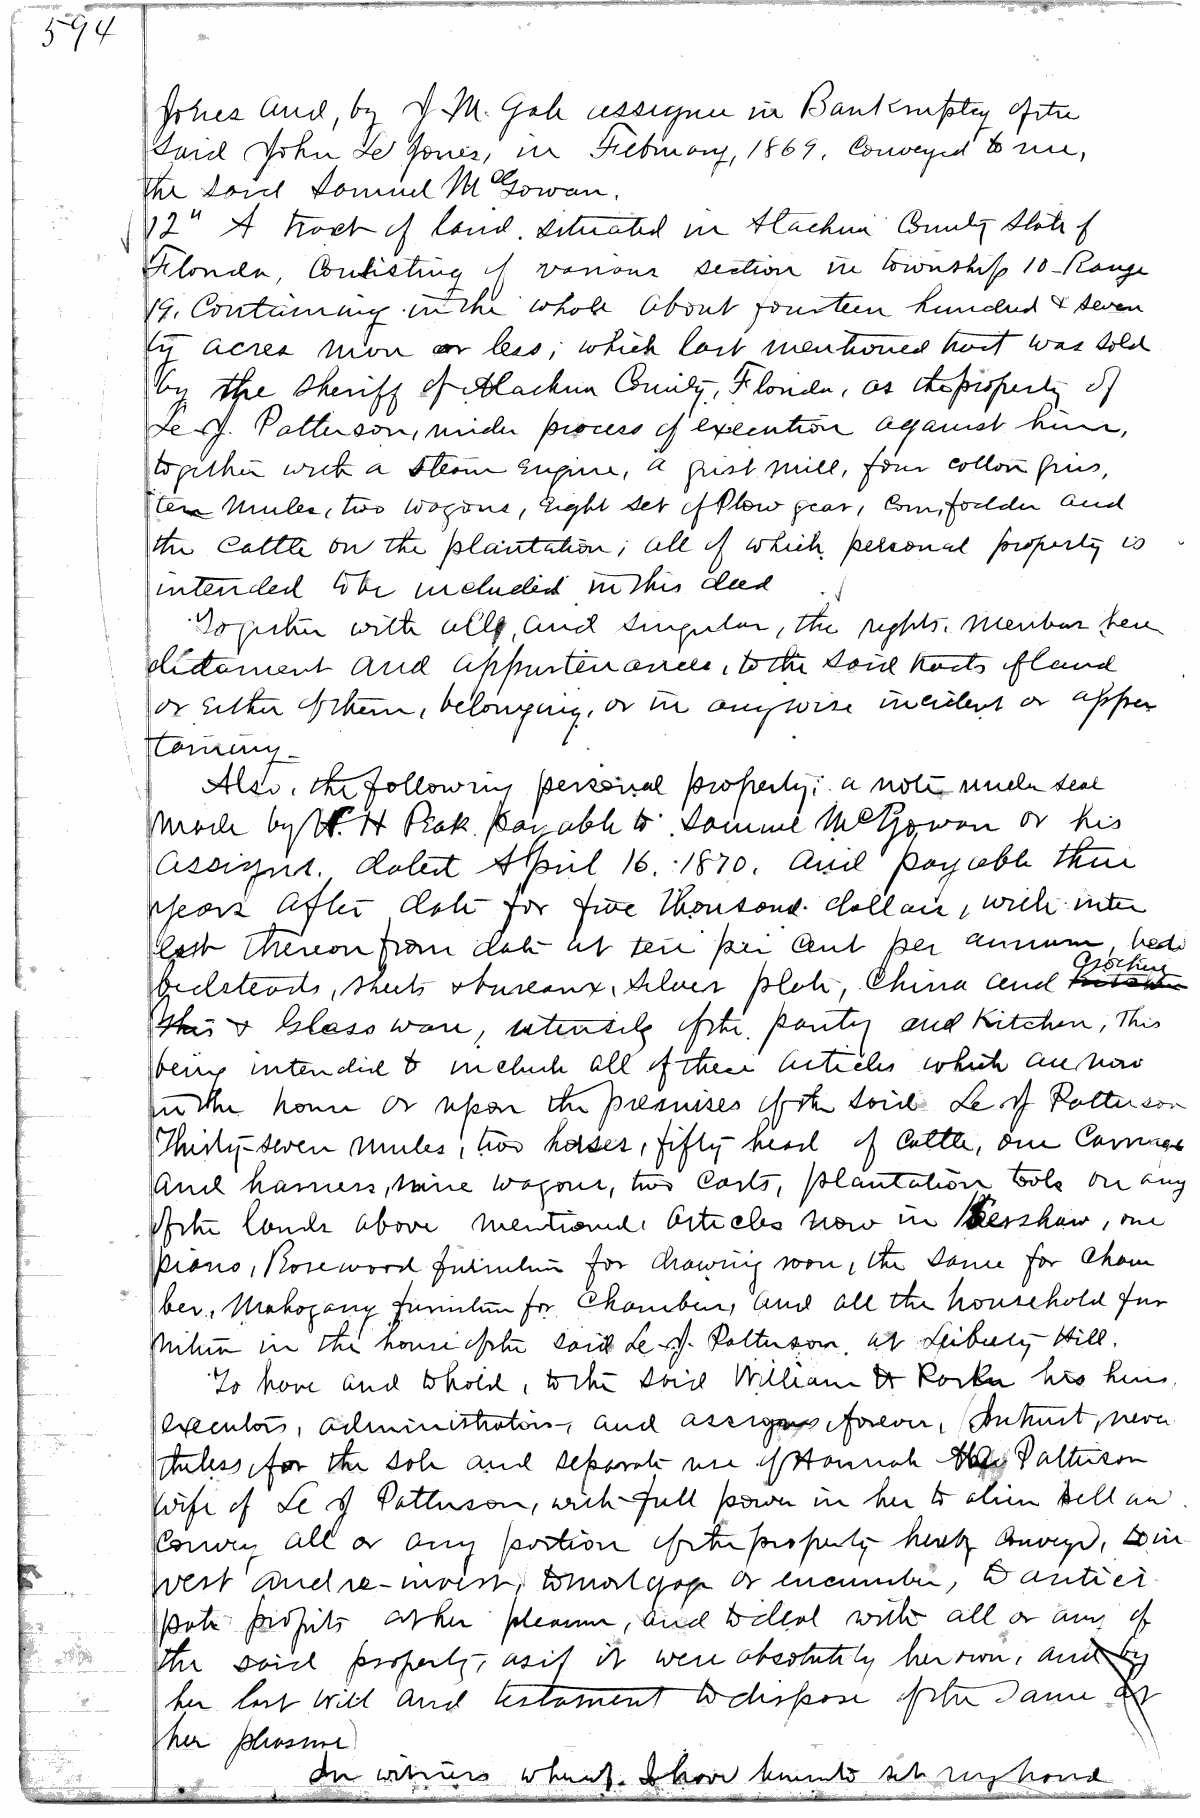 594
Jones and, by J. M. Gale assignee in Bankruptcy of the
said John Le Jones, in February, 1869, conveyed to me,
the said Samuel McGowan.
12" A tract of land situated in Alachua County State of
Florida, Consisting of various section in township 10 - Range
19. Containing in the whole about fourteen hundred & seven
ty acres more or less; which last mentioned tract was sold
by the Sheriff of Alachua County, Florida, as the property of
Le J. Patterson, under process of execution against him,
together with a steam Engine, a grist mill, four cotton gins,
ten mules, two wagons, Eight set of Plow gear, corn, fodder and
the cattle on the plantation; all of which personal property is
intended to be included in this deed
Together with all, and singular, the rights, members here
ditament and appurtenances, to the said tracts of land
or Either of them, belonging, or in anywise incident or apper
taining -
Also, the following personal property; a note under seal
made by H Peak payable to Samuel McGowan or his
assigns, dated April 16, 1870, and payable three
years after date for five thousand dollars, with inter
est thereon from date at ten per cent per annum, beds
bedsteads, sheets & bureaux, silver plate, China and Crockery
& Glass ware, utensils of the pantry and Kitchen; This
being intended to include all of these articles which are now
in the house or upon the premises of the said Le J Patterson
Thirty-seven mules, two horses, fifty head of cattle, one Carriage
and harness, nine wagons, two carts, plantation tools on any
of the lands above mentioned, articles now in Kershaw, one
piano, Rosewood furniture for drawing room, the same for cham
ber, Mahogany furniture for Chambers, and all the household fur
niture in the house of the said Le J. Patterson, at Liberty Hill.
To have and to hold, to the said William H Parker his heirs,
executors, administrators, and assigns, forever, (In trust, never
theless, for the sole and separate use of Hannah Patterson
wife of Le J Patterson, with full power in her to alien sell an
convey all or any portion of the property hereby conveyed, to in
vest and re-invest, to mortgage or encumber, to antici
pate profits at her pleasure, and to deal with all or any of
the said property, as if it were absolutely her own, and by
her last will and testament to dispose of the same at
her pleasure)
In witness whereof. I have hereunto set my hand